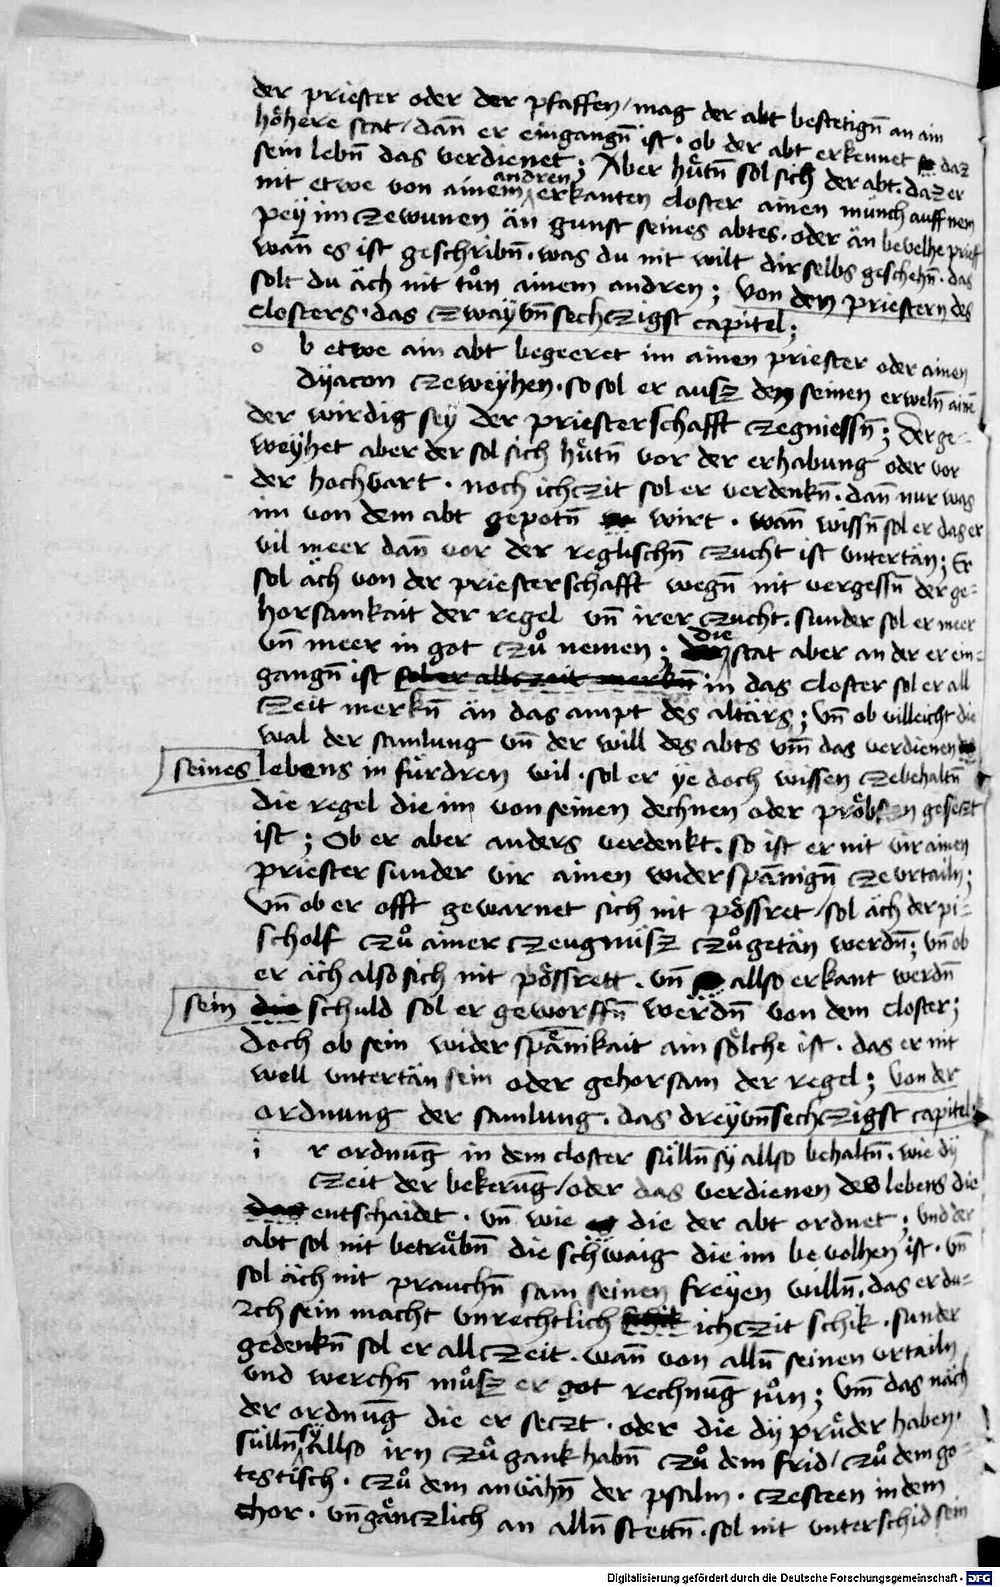 der priester oder der pfaffen / mag der abt bestetign̄ an ain
höhere stat / dan̄ er eingangn̄ ist · ob der abt erkennet daz
sein lebn̄ das verdienet ; Aber hütn̄ sol sich der abt · daz er
nit etwe von ainem andren erkanten closter ainen münch auffnem
pey im czewunen än gunst seines abtes · oder än bevelhe prief
wan̄ es ist geschribn̄ · was du nit wilt dir selbs geschehn̄ · das
solt du äch nit tůn ainem andren ; von den priestern des
closters · das czwayvn̄sechczigst capitel ;
o b etwe ain abt begeeret im ainen priester oder ainen
dyacon czeweyhen · so sol er ausz den seinen erweln̄ ainē
der wirdig sey der priesterschafft czegniessn̄ ; der ge-
weyhet aber der sol sich hütn̄ vor der erhabung oder vor
der hochvart · noch ichczit sol er verdenkn̄ · dan̄ nur was
im von dem abt gepotn̄ wirt · wan̄ wissn̄ sol er das er
vil meer dan̄ vor der reglischn̄ czucht ist vntertän ; Er
sol äch von der priesterschafft wegn̄ nit vergessn̄ der ge-
horsamkait der regel vn̄ irer czucht · sunder sol er meer
vn̄ meer in got czů nemen ; die stat aber an der er ein-
gangn̄ ist sol er allczeit merkn̄ in das closter sol er all
czeit merkn̄ än das ampt des altärs ; vn̄ ob villeicht die
wal der samlung vn̄ der will des abts vm̄ das verdienen
seines lebens in fürdren wil · sol er ye doch wissen czebehaltn̄
die regel die im von seinen dechnen oder pröbsten geseczt
ist ; Ob er aber anders verdenkt · so ist er nit vir ainen
priester sunder vir ainen widerspännign̄ czevrtailn ;
vn̄ ob er offt gewarnet sich nit pössret / sol äch der pi-
scholf czů ainer czeugnüsz czů getän werdn̄ ; vn̄ ob
er äch also sich nit pössrett · vn̄ allso erkant werdn̄
sein die schuld sol er geworffn̄ werdn̄ von dem closter ;
doch ob sein widerspänikait ain sölche ist · das er nit
well vntertän sein oder gehorsam der regel ; von der
ordnung der samlung · das dreyvn̄sechczigst capitel
i r ordnūg in dem closter sülln̄ sy allso behaltn̄ · wie dy
czeit der bekerūg / oder das verdienen des lebens die
das entschaidet · vn̄ wie die der abt ordnet ; vnd der
abt sol nit betrübn̄ die schwaig die im bevolhen ist · vn̄
sol äch nit prauchn̄ sam seinen freyen willn̄ · das er du-
rch sein macht vnrechtlich ichczit schik · sunder
gedenkn̄ sol er allczeit · wan̄ von alln̄ seinen vrtailn
vnd werchn̄ můsz er got rechnūg tůn ; vm̄ das näch
der ordnūg die er seczt · oder die dy prüder haben
sülln̄ sy allso irn czůgank habn̄ czů dem frid / czů dem go-
testisch · czů dem anvähn̄ der psalm · czesteen in dem
chor · vn̄ gänczlich an alln̄ stettn̄ · sol nit vnterschid sein